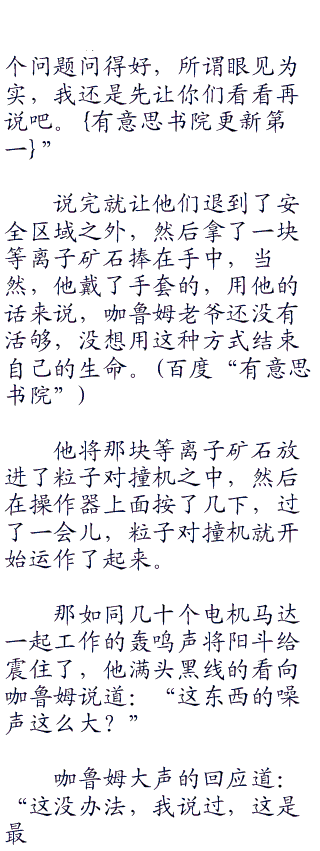 个问题问得好，所谓眼见为
实，我还是先让你们看看再
说吧。{有意思书院更新第
一}”
说完就让他们退到了安
全区域之外，然后拿了一块
等离子矿石捧在手中，当
然，他戴了手套的，用他的
话来说，咖鲁姆老爷还没有
活够，没想用这种方式结束
自己的生命。(百度“有意思
书院”)
他将那块等离子矿石放
进了粒子对撞机之中，然后
在操作器上面按了几下，过
了一会儿，粒子对撞机就开
始运作了起来。
那如同几十个电机马达
一起工作的轰鸣声将阳斗给
震住了，他满头黑线的看向
咖鲁姆说道：“这东西的噪
声这么大？”
咖鲁姆大声的回应道：
“这没办法，我说过，这是
最